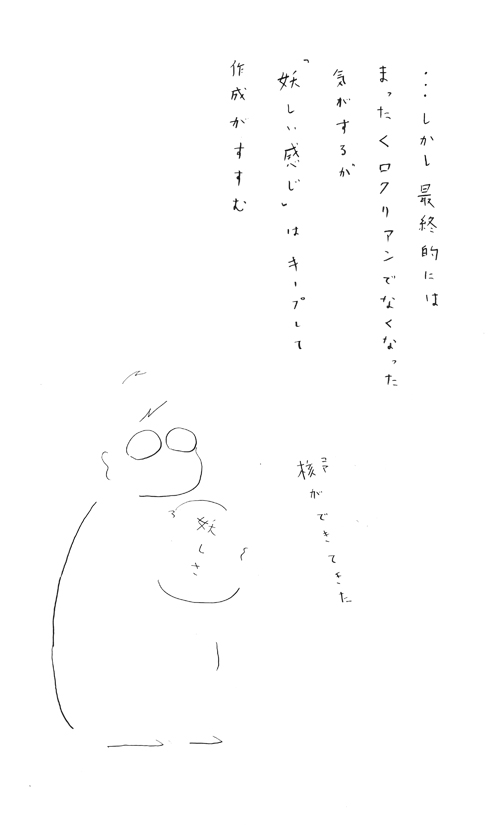 …しかし最終的には
まったくロクリアンでなくなった
気がするが
「妖しい感じ」はキープして
作成がすすむ
核ができてきた
妖しさ